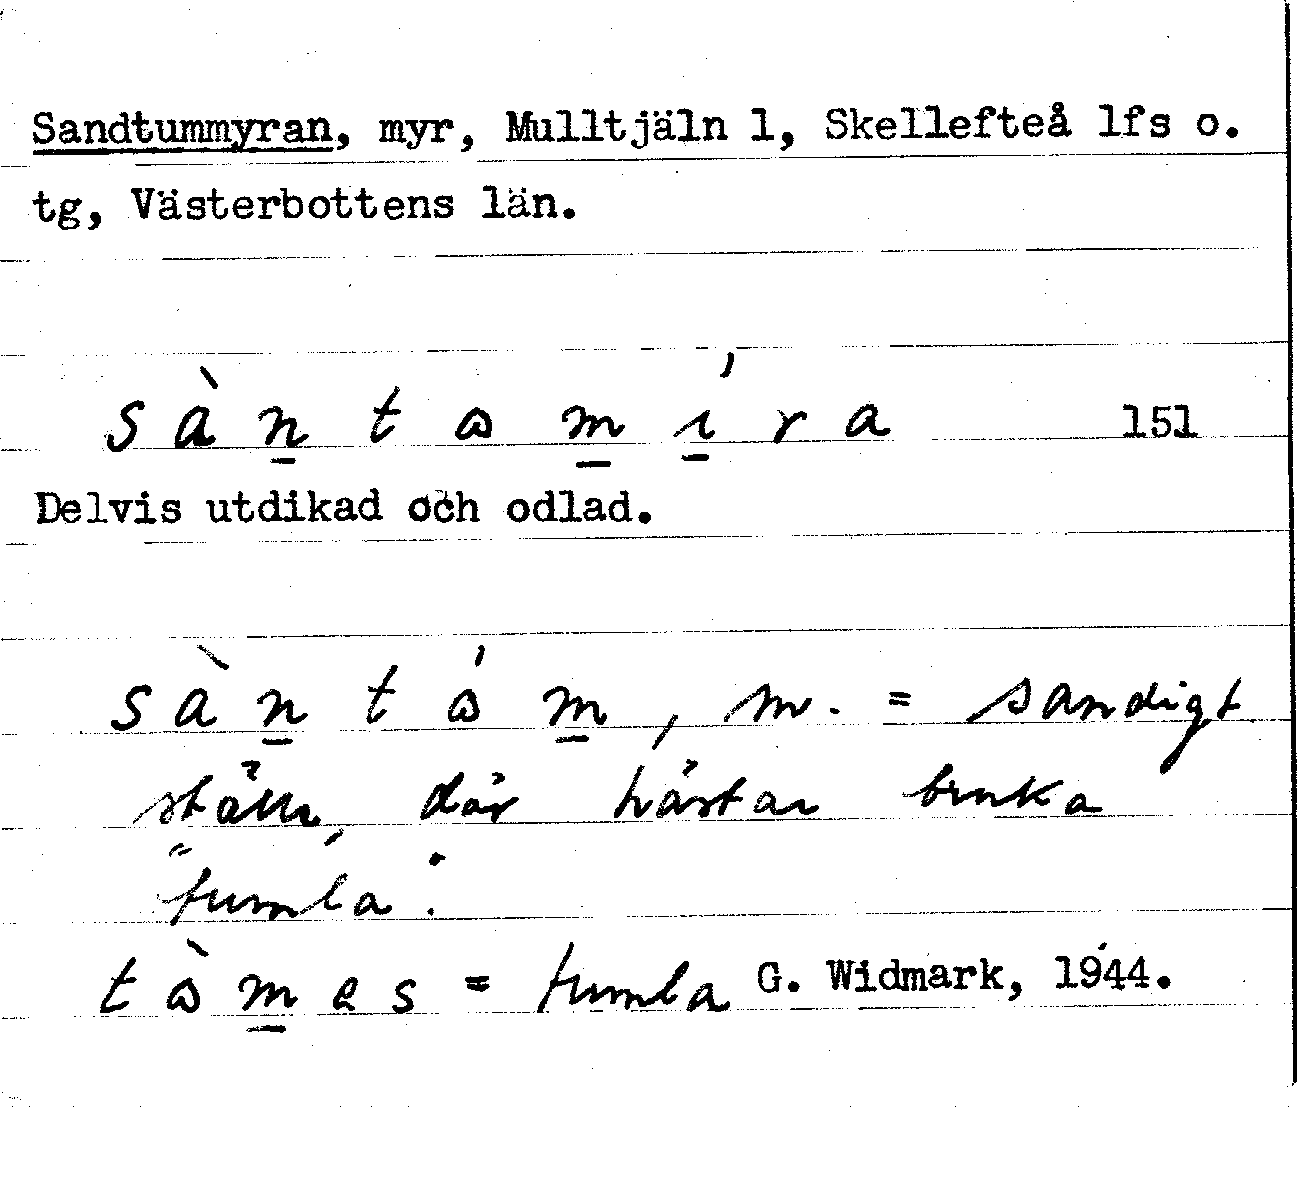 Sandtummyran, myr, Mulltjäln 1, Skellefteå lfs o.
tg, Västerbottens län.
sànt𝼀míra 151
Delvis utdikad och odlad.
sànt𝼀́m, m. = sandigt
ställe, där hästar bruka
"tumla".
t𝼀̀mes = tumla G. Widmark, 1944.